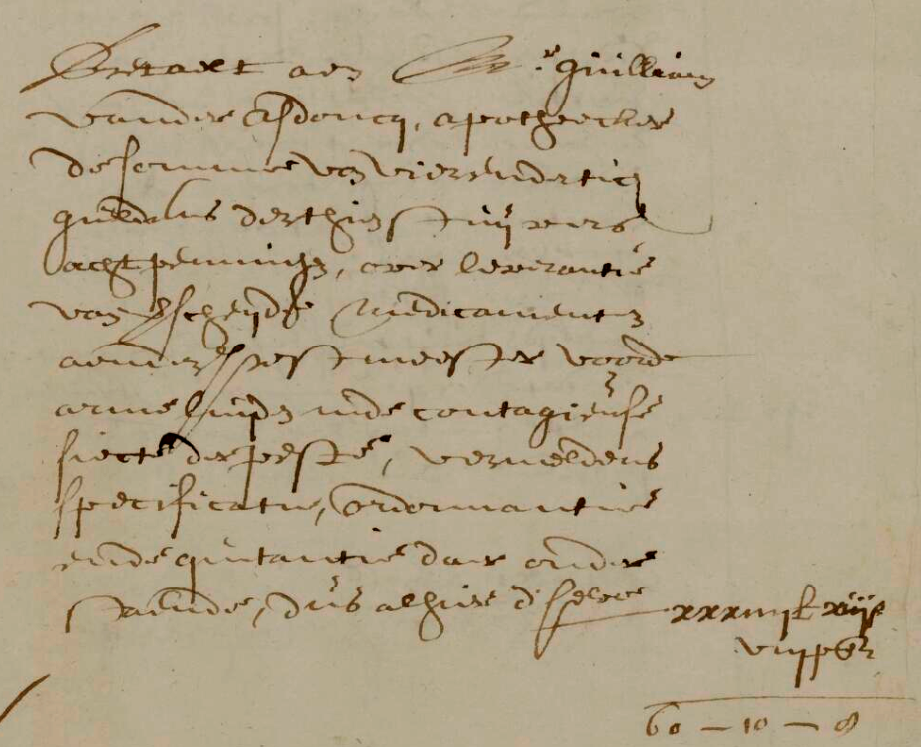 Betaelt aen Mr. guilliam
vander Asdoncq, apotheecker
de somme van vierendertich
guldens derthien stuijvers
acht penningen, over leverantie
van verscheijde Medicamenten
aenden pestmeester voorde
arme luijden inde contagieuse
siecte der peste, vermeldens
specificatie, ordonnantie
ende quitantie daer onder
staende, dus alhier deselve
xxxiiij £ xiij s
viij pen
60 - 10 - 8